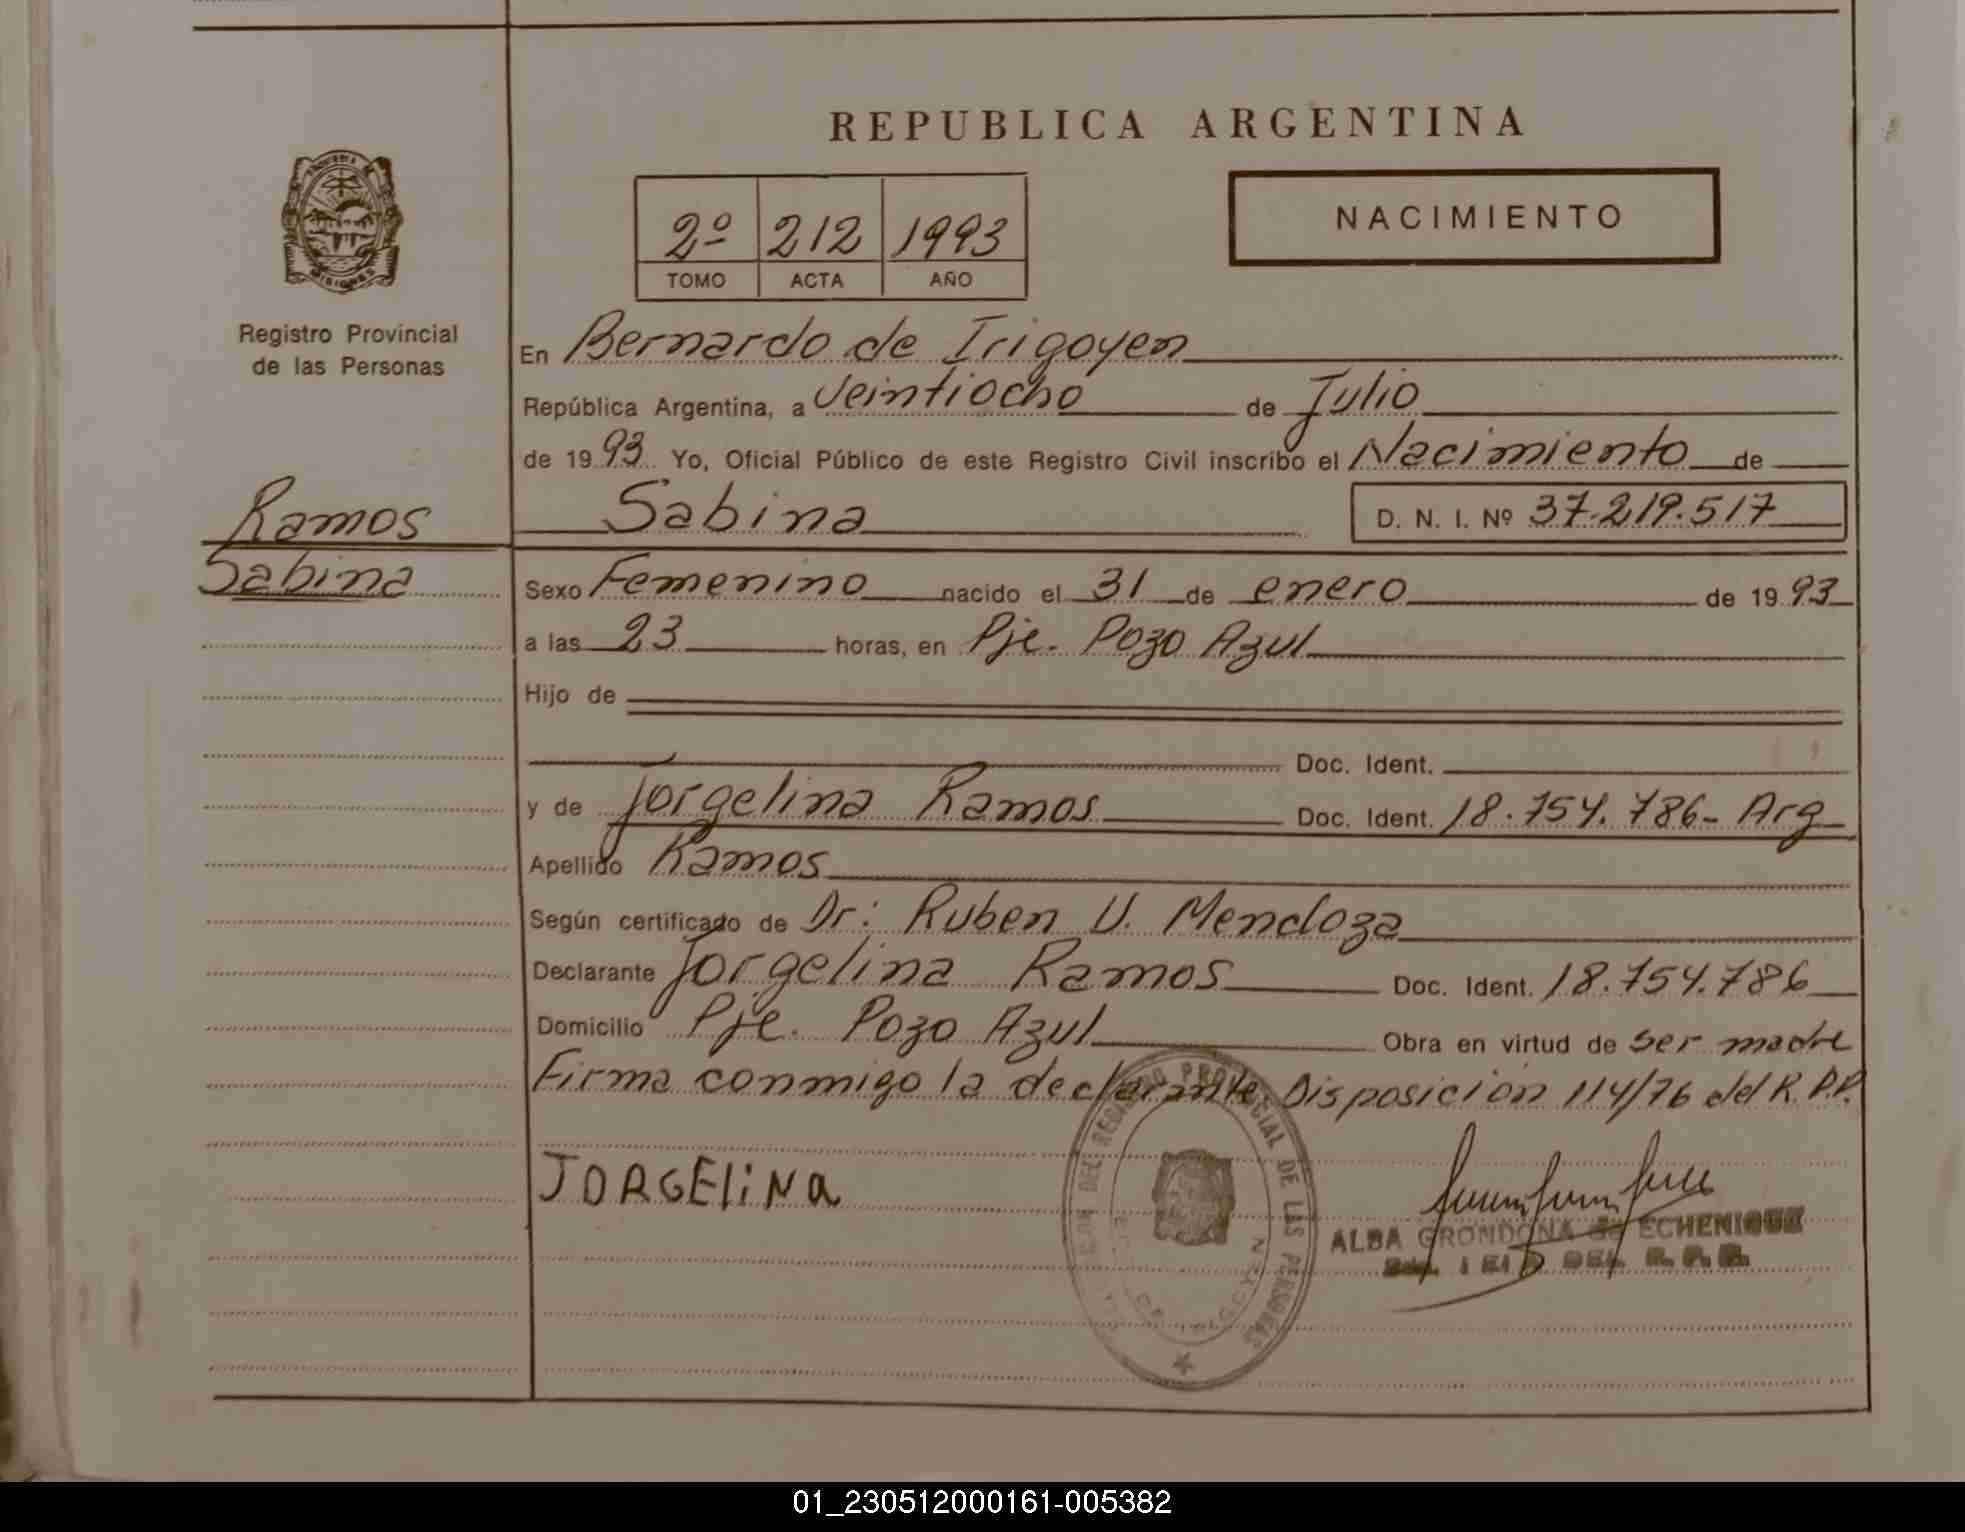 REPUBLICA ARGENTINA
2º 212 1993
TOMO ACTA AÑO
NACIMIENTO
MISIONES
Registro Provincial
de las Personas
Ramos
Sabina
En Bernardo de Irigoyen
República Argentina, a Veintiocho de Julio
de 1993 Yo, Oficial Público de este Registro Civil inscribo el Nacimiento de
Sabina D. N. I. Nº 37.219.517
Sexo Femenino nacido el 31 de enero de 1993
a las 23 horas, en Pje. Pozo Azul
Hijo de
Doc. Ident.
y de Jorgelina Ramos Doc. Ident. 18.754.786- Arg
Apellido Ramos
Según certificado de Dr: Ruben U. Mendoza
Declarante Jorgelina Ramos Doc. Ident. 18.754.786
Domicilio Pje. Pozo Azul Obra en virtud de ser madre
Firma conmigo la declarante Disposición 114/76 del R.P.P.
JORGELiNa
DEL REGISTRO PROVINCIAL DE LAS PERSONAS
ALBA GRONDONA de ECHENIQUE
DEL R. P. P.
01_230512000161-005382